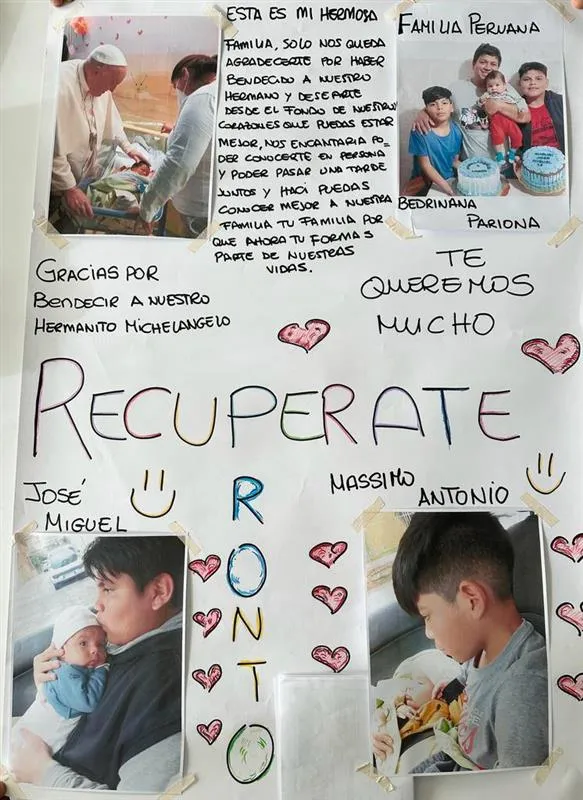 ESTA ES MI HERMOSA
FAMILIA, SOLO NOS QUEDA
AGRADECERTE POR HABER
BENDECIDO A NUESTRO
HERMANO Y DESEARTE
DESDE EL FONDO DE NUESTROS
CORAZONES QUE PUEDAS ESTAR
MEJOR, NOS ENCANTARIA PO=
DER CONOCERTE EN PERSONA
Y PODER PASAR UNA TARDE
JUNTOS Y HACI PUEDAS
CONOCER MEJOR A NUESTRA
FAMILIA TU FAMILIA POR
QUE AHORA TU FORMAS
PARTE DE NUESTRAS
VIDAS.
FAMILIA PERUANA
BEDRINANA
PARIONA
GRACIAS POR
BENDECIR A NUESTRO
HERMANITO MICHELANGELO
TE
QUEREMOS
MUCHO
RECUPERATE
PRONTO
JOSÉ
MIGUEL
MASSIMO
ANTONIO